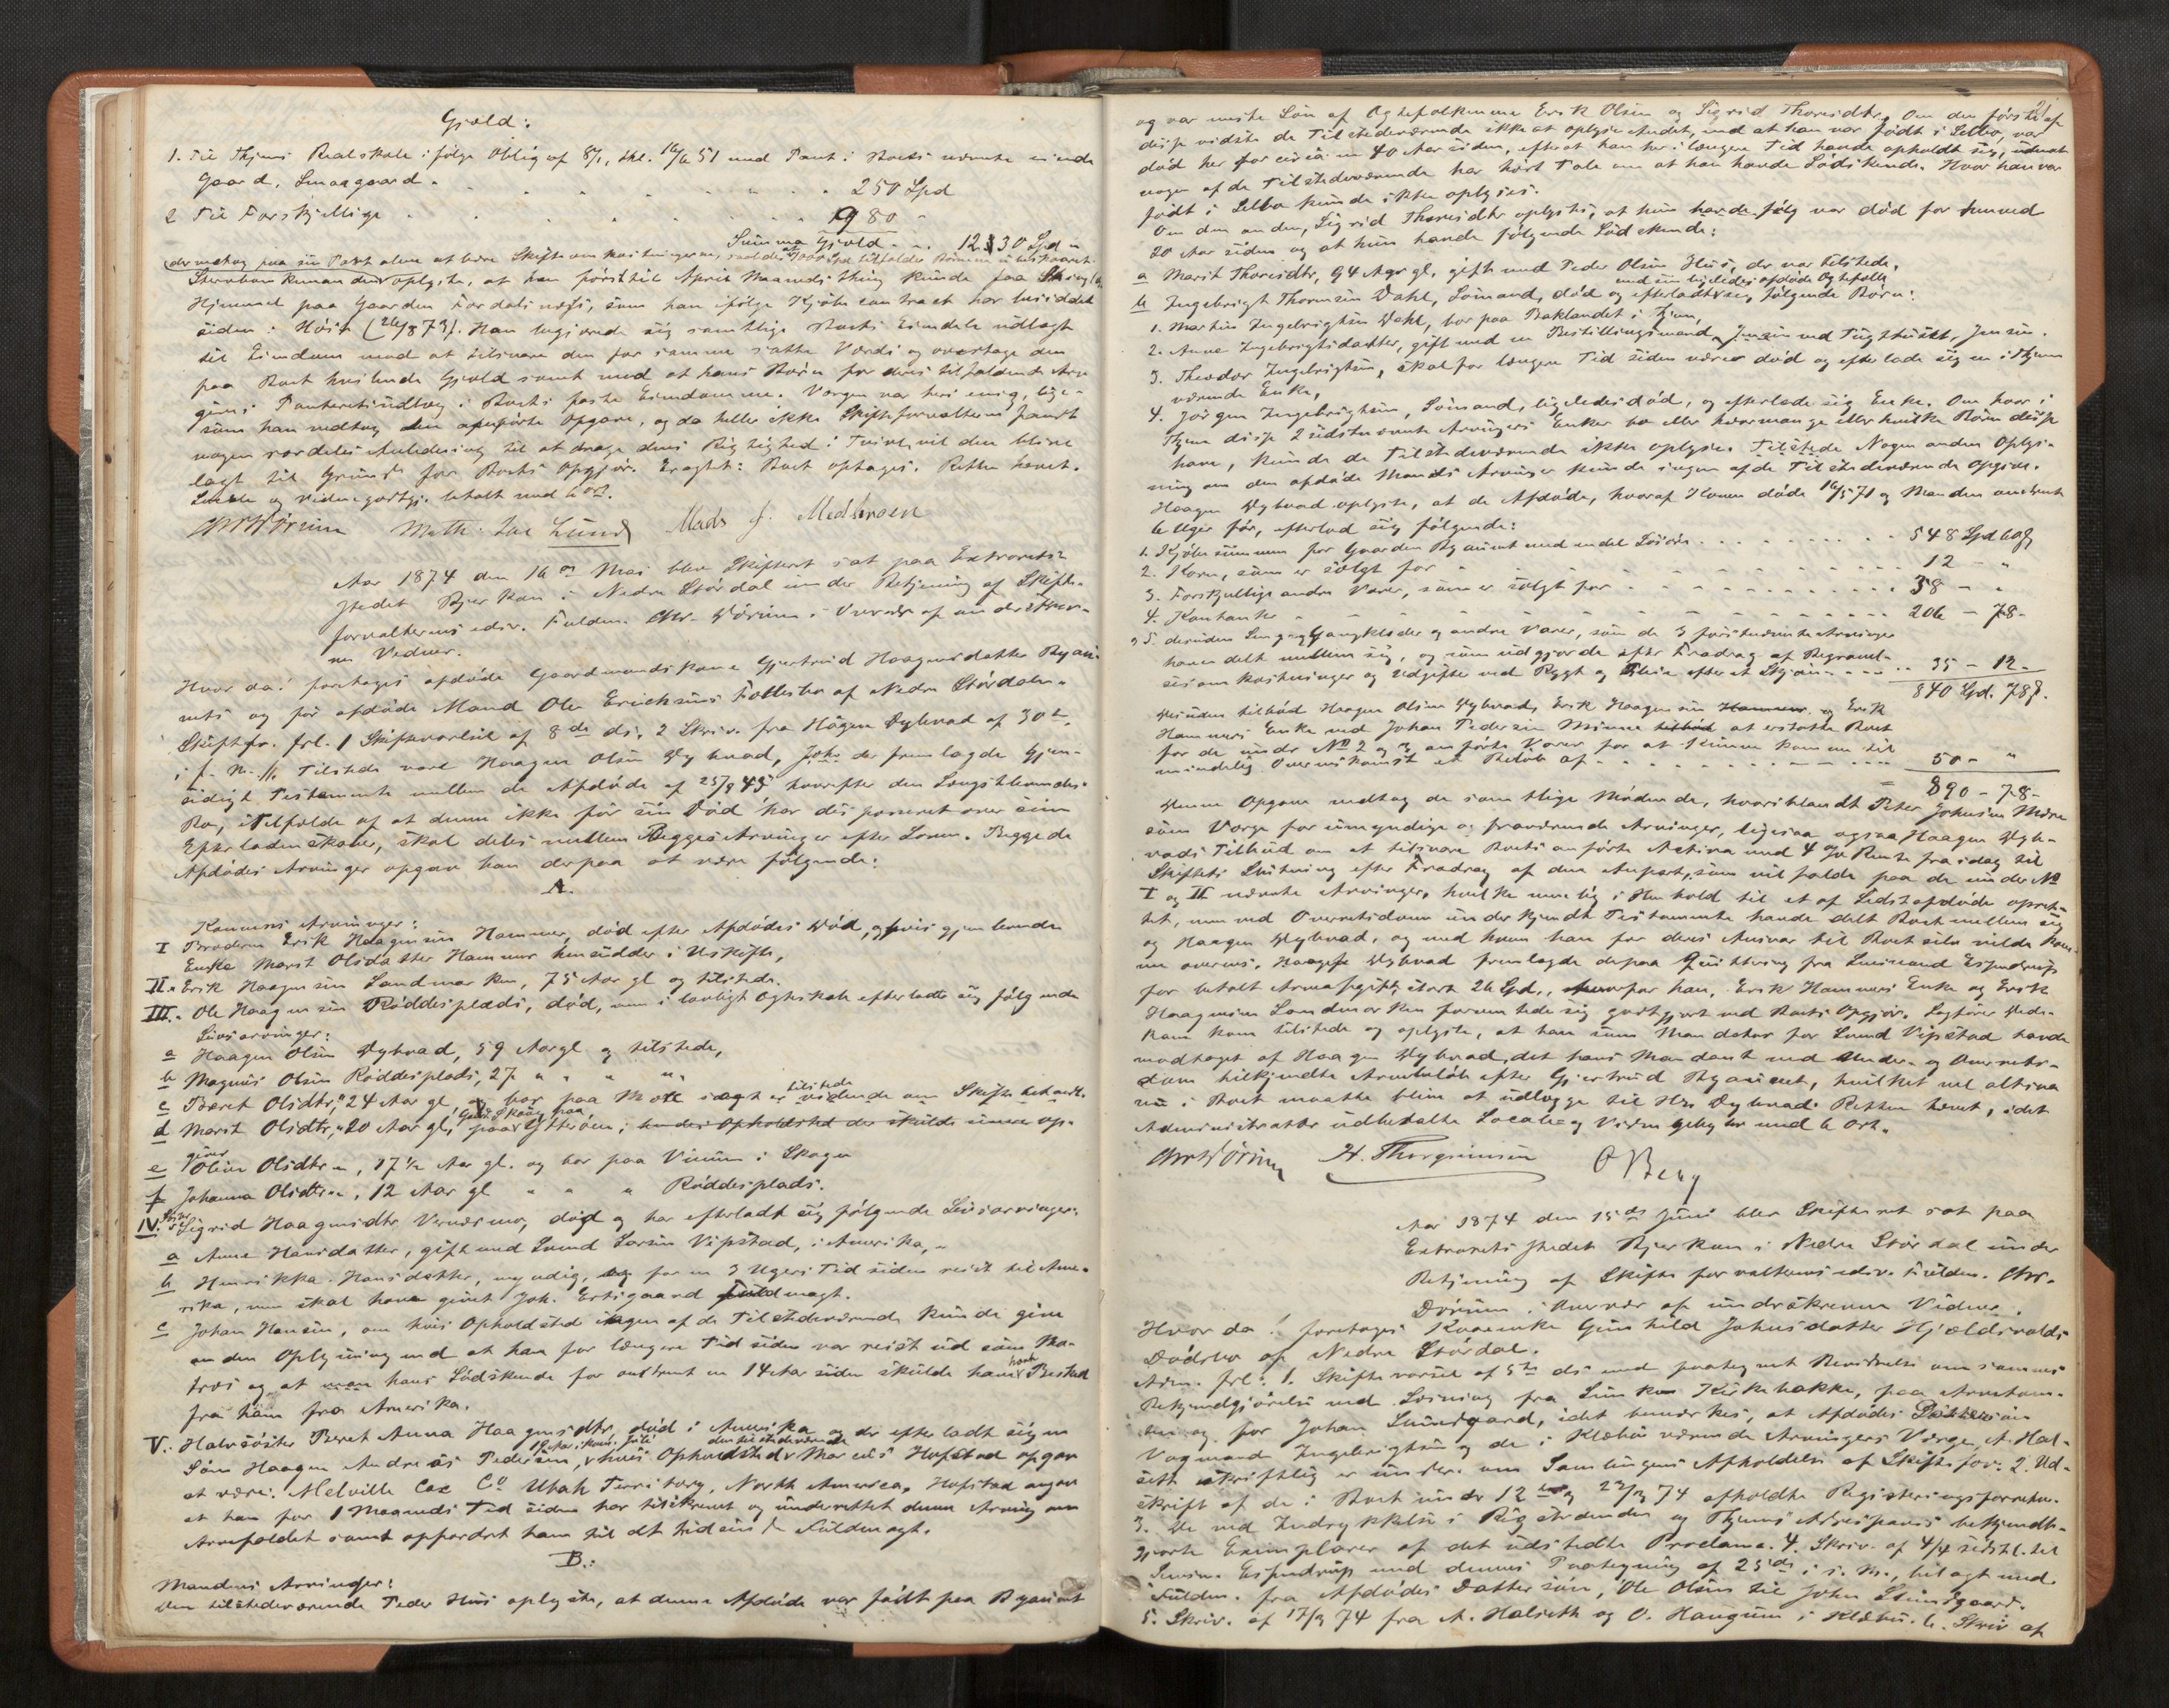 Gjæld:
1. Til Thjems Realskole ifølge Oblig. af 8/1, thl. 16/6 51 med Pant i Boets nævnte eiende
Gaard, Smaagaard . . . . . . . 250 Spd
2 Til Forskjellige . . . . . . . 980 -
Summa Gjæld . . . 1230 Spd "
Stervboenkemanden oplyste, at han først til April Maaneds Thing kunde faa
Hjemmel paa Gaarden, som han ifølge Kjøbecontract har besiddet
siden i Høst (26/8 73). Han begjærede sig samtlige Boets Eiendele udlagt
til Eiendom mod at tilsvare den for samme satte Værdi og overtage den
paa Boet hvilende Gjæld samt mod at hans Børn for deres tilfaldende Arv
gives Panteretsudlæg i Boets faste Eiendomme. Værgen var heri enig, lige-
som han vedtog den anførte Opgave, og da heller ikke Skifteforvalteren fandt
nogen særdeles Anledning til at drage dens Rigtighed i Tvivl, vil den blive
lagt til Grund for Boets Opgjør. Eragtet: Boet optages. Retten hævet.
Locale og Vidnegodtgj. betalt med 6 ort.
Chr Dörum Math. Lund Mads J.
Aar 1874 den 16de Mai blev Skifteret sat paa Extrarets-
stedet Bjerkan i Nedre Stördal under Betjening af Skifte-
forvalterens edsv. Fuldm. Chr. Dörum i Overvær af underskrev-
ne Vidner.
Hvor da! foretages afdøde Gaardmandskone Gjertrud Haagensdatter Ryan-
nets og før afdøde Mand Ole Ericksens Fællesbo af Nedre Stördalen.
Skiftefv. frl. 1 Skiftevarsel af 8de ds, 2 Skriv. fra Haagen Dybvad af 30te
i f. M. //. Tilstede vare Haagen Olsen Dybvad, der fremlagde Gjen-
sidigt Testamente mellem de Afdøde af 25/8 45 hvorefter den Længstlevendes
Bo, i Tilfælde af at denne ikke før sin Død har disponeret over sine
Efterladenskaber, skal deles mellem Begges Arvinger efter Loven. Begge de
Afdødes Arvinger opgav han derpaa at være følgende:
A.
Konens Arvinger:
I Broderen Erik Haagensen Hammer, død efter Afdødes Død, hvis gjenlevende
Enke Marit Olsdatter Hammer hensidder i Uskifte,
II. Erik Haagensen Sandmarken, 75 Aar gl og tilstede.
III. Ole Haagensen Røddesplads, død, men i lovligt Ægteskab efterladte sig følgende
Livsarvinger:
a Haagen Olsen Dybvad, 59 Aar gl og tilstede,
b Magnus Olsen Røddesplads, 27 " " " "
c Beret Olsdtr, 24 Aar gl og bor paa sagt tilstede vidende om Skifte behandl.
d Marit Olsdtr, 20 Aar gl, paa Ytterøen; hendes Opholdsted der skulde op-
gives
e Oline Olsdtr, 17 1/2 Aar gl. og bor paa Vinum i Skogn
f Johanna Olsdtr, 12 Aar gl " " " Røddesplads.
IV. Søster Sigrid Haagensdtr Værnesmo, død og har efterladt sig følgende Livsarvinger:
a Anne Hansdatter, gift med Svend Larsen Vipstad, i Amerika,
b Henrikka Hansdatter, myndig, for en 3 Ugers Tid siden reist til Ame-
rika, men skal have givet Joh. Ertsgaard Fuldmagt.
c Johan Hansen, om hvis Opholdsted ingen af de Tilstedeværende kunde give
anden Oplysning end at han for længere Tid siden var reist ud som Ma-
tros og at hans Sødskende for omtrent en 14 Aar siden skulde have havt Besked
fra ham fra Amerika.
V. Halvsøster Beret Anna Haagensdtr, død i Amerika og der efterladt sig en
Søn Haagen Andreas Pedersen, hvis Opholdsted den tilstedeværende Marcus Hofstad opgav
at være: Melville Cax Co Utah Territory, North America. Hofstad angav
at han for 1 Maaneds Tid siden har tilskrevet og underrettet denne Arving om
Arvefaldet samt opfordret ham til at tilsende Fuldmagt.
B.:
Mandens Arvinger:
Den tilstedeværende Peder Huus oplyste, at denne Afdøde var født paa Ryannet
21
og var neste Søn af Ægtefolkene Erik Olsen og Sigrid Thoresdtr. Om den første af
disse vidste de Tilstedeværende ikke at oplyse Andet, end at han var født i Selbo, var
død her for circa en 40 Aar siden, efterat han her i længere Tid havde opholdt sig, uden at
nogen af de Tilstedeværende har hørt Tale om at han havde Sødskende. Hvor han var
født i Selbo kunde ikke oplyses.
Om den anden, Sigrid Thoresdtr oplystes, at hun var død for henved
20 Aar siden og at hun havde følgende Sødskende:
a Marit Thoresdtr, 94 Aar gl. gift med Peder Olsen Huus, der var tilstede,
b Ingebrigt Thoresen Dahl, Sømand, død og efterladt med sin ligeledes afdøde Ægtefælle sig følgende Børn:
1. Martin Ingebrigtsen Dahl, bor paa Baklandet i Thjem,
2. Anne Ingebrigtsdatter, gift med en Bestillingsmand Jensen ved Tugthuset, Jensen.
3. Theodor Ingebrigtsen, skal for længere Tid siden være død og efterlade sig en i Thjem
værende Enke,
4. Jørgen Ingebrigtsen, Sømand, ligeledes død, og efterlade sig Enke. Om hvor i
Thjem disse 2 sidstnævnte Arvingers Enker bo eller hvormange eller hvilke Børn disse
have, kunde de Tilstedeværende ikke oplyse. Nogen anden Oplys-
ning om den afdøde Mands Arvinger kunde ingen af de Tilstedeværende opgive.
Haagen Dybvad oplyste, at de Afdøde, hvoraf Konen døde 16/5 71 og Manden omtrent
6 Uger før, efterlod sig følgende:
1. Kjøbesummen for Gaarden Ryannet med endel Løsøre . . . . . 548 Spd 60 ß
2. Korn, som er solgt for . . . . . 12 - "
3. Forskjellige andre Varer, som er solgt for . . . . . 38 - "
4. Kontanter . . . . . 206 - 78 -
5. desuden Seng- og Gangklæder og andre Varer, som de 3 førstnævnte Arvinger
have delt mellem sig, og som udgjorde efter Fradrag af Begravel-
sesomkostninger og Udgifter ved Røgt og Pleie efter et Skjøn . . . 35 - 12 -
840 Spd. 78 ß.
Desuden tilbød Haagen Olsen Dybvad, Erik Haagensen og Erik
Hammers Enke ved Johan Pedersen Minne at erstatte Boet
for de under No 2 og 3 anførte Varer for at kunne komme til
mindelig Overenskomst et Beløb af . . . . . 50 - "
= 890 - 78 -
Denne Opgave vedtog de samtlige Mødende, hvoriblandt Peter Johnsen Mære
som Værge for umyndige og fraværende Arvinger, ligesaa ogsaa Haagen Dyb-
vads Tilbud om at tilsvare Boets anførte Activa med 4 % Rente fra idag til
Skiftets Slutning efter Fradrag af den Anpart, som vil falde paa de under No
I og II nævnte Arvinger, hvilke nemlig i Henhold til et af Sidstafdøde opret-
tet, men ved Overretsdom underkjendt Testamente havde delt Boet mellem sig
og Haagen Dybvad, og med hvem han for deres Ansvar til Boet selv vilde kom-
me overens. Haagen Dybvad fremlagde derpaa Quittering fra Lensmand Espendrup
for betalt Arveafgift, stort 26 Spd., hvorfor han, Erik Hammers Enke og Erik
Haagensen Sandmarken formente sig godtgjort ved Boets Opgjør. Sagfører Hede-
kam kom tilstede og oplyste, at han som Mandatar for Svend Vipstad havde
modtaget af Haagen Dybvad, det hans Mandant ved Under- og Overrets-
dom tilkjendte Arvebeløb efter Gjertrud Ryannet, hvilket vel altsaa
nu i Boet maatte blive at udlægge til Hrr Dybvad. Retten hævet, idet
Administrator udbetalte Locale og Vidnegebyhr med 6 Ort.
Chr Dörum H. Thorgrimsen P Berg
Aar 1874 den 15de Juni blev Skifteret sat paa
Extraretsstedet Bjerkan i Nedre Stördal under
Betjening af Skifteforvalterens edsv. Fuldm. Chr.
Dörum i Overvær af underskrevne Vidner.
Hvor da! foretages Kaarenke Gunhild Johnsdatter Hjældsvolds
Dødsbo af Nedre Stördal.
Adm. frl. 1. Skiftevarsel af 5te ds med paategnet Bevidnelse om sammes
Bekjendtgjørelse ved Læsning fra Kirkebakke, paa Arvetom-
ten og for Johan Slundgaard, idet bemærkes, at Afdødes Dattersøn
Vagmand Ingebrigtsen og de i Klæbu værende Arvingers Værge A. Hal-
seth skriftlig er underr. om Samlingens Afholdelse af Skiftefor. 2. Ud-
skrift af de i Boet under 12 og 22/3 74 afholdte Registeringsforretn.
3. De ved Indrykkelse i Rigstidenden og Thjems Adresseavis bekjendt-
gjorte Exemplarer af det udstedte Proclama. 4. Skriv. af 4/4 sidstl. til
Lensm. Espendrup med dennes Paategning af 25de i s. M., bilagt med
Fuldm. fra Afdødes Dattersøn, Ole Olsen til John Slundgaard.
5. Skriv. af 17/3 74 fra A. Halseth og O. Haugum i Klæbu. 6. Skriv af